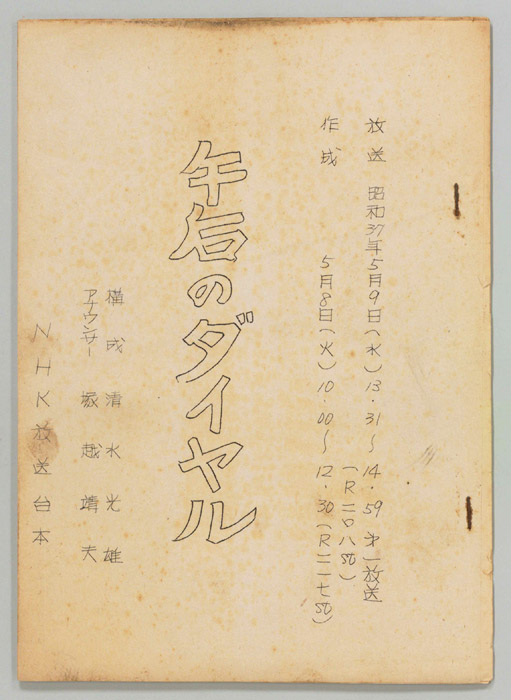 放送 昭和37年5月9日(水)13.31〜14.59 第一放送
(R二〇八st)
作成 5月8日(火)10.00〜12.30(R二一七st)
午后のダイヤル
構成 清水光雄
アナウンサー 塚越靖夫
NHK放送台本